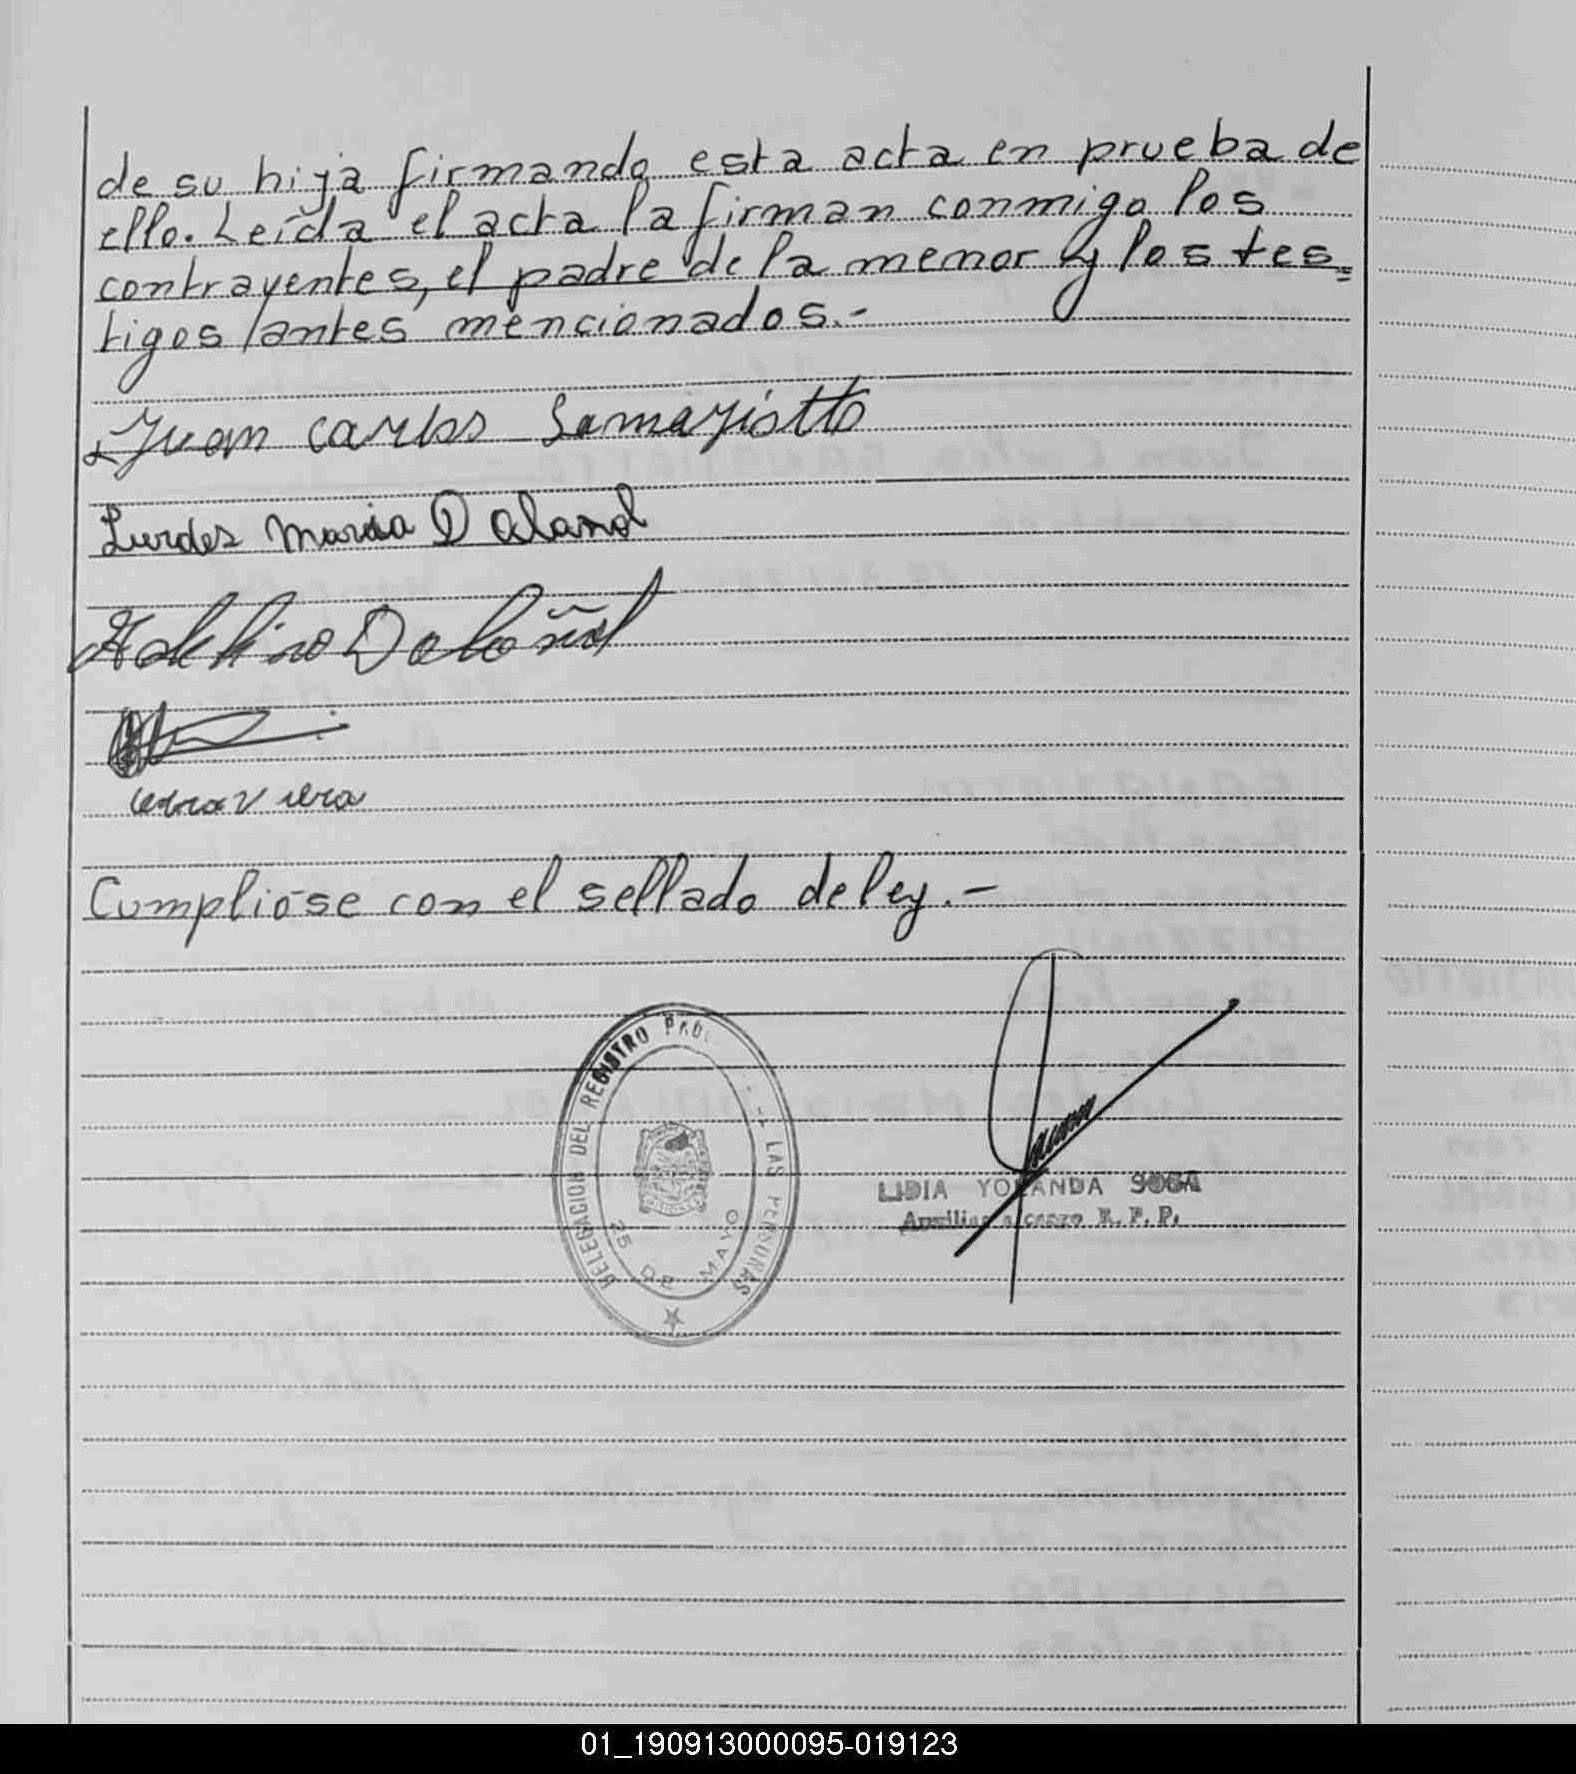 de su hija firmando esta acta en prueba de
ello. Leída el acta la firman conmigo los
contrayentes, el padre de la menor y los tes=
tigos antes mencionados.-
Juan Carlos
Lurdes Maria Daland
Adelino Dalañol
Viera
Cumplióse con el sellado de ley.-
DELEGACION DEL REGISTRO LAS PERSONAS
25 DE MAYO
LIDIA YOLANDA SOSA
R. P. P.
01_190913000095-019123